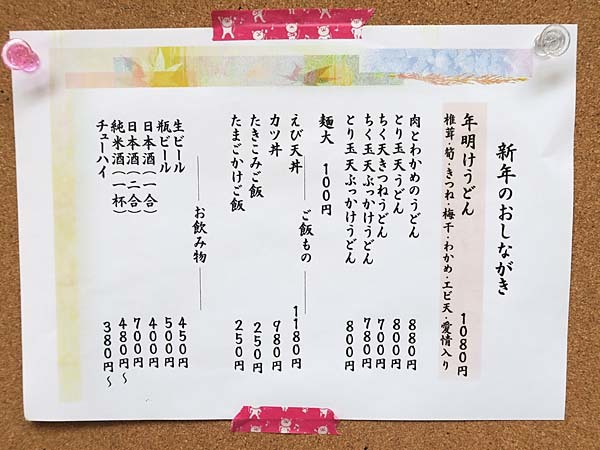 新年のおしながき
年明けうどん 1080円
椎茸・筍・きつね・梅干・わかめ・エビ天・愛情入り
肉とわかめのうどん 880円
とり玉天うどん 800円
ちく天きつねうどん 700円
ちく玉天ぶっかけうどん 780円
とり玉天ぶっかけうどん 800円
麺大 100円
ご飯もの
えび天丼 1180円
カツ丼 980円
たきこみご飯 250円
たまごかけご飯 250円
お飲み物
生ビール 450円
瓶ビール 500円
日本酒(一合) 400円
日本酒(二合) 700円
純米酒(一杯) 480円～
チューハイ 380円～